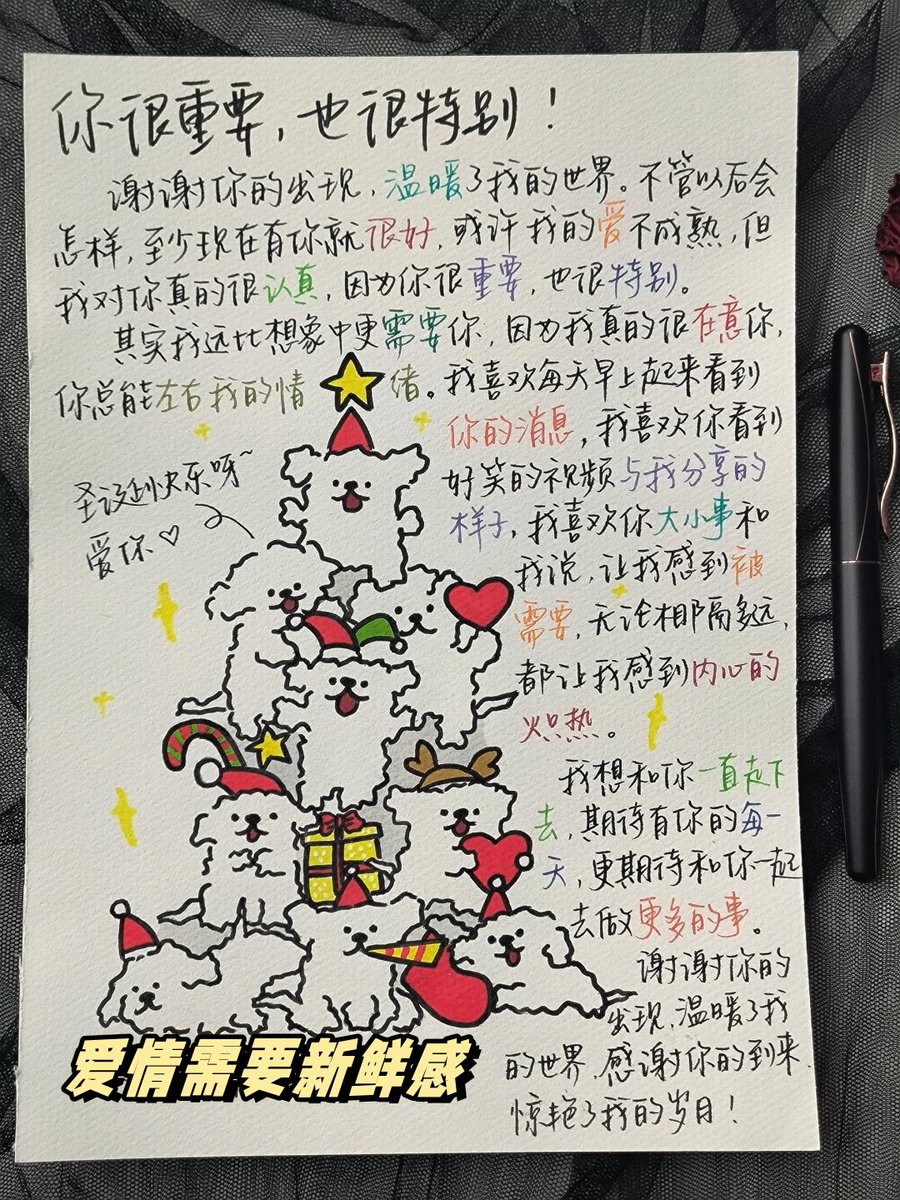 你很重要，也很特别！
谢谢你的出现，温暖了我的世界。不管以后会
怎样，至少现在有你就很好，或许我的爱不成熟，但
我对你真的很认真，因为你很重要，也很特别。
其实我远比想象中更需要你，因为我真的很在意你，
你总能左右我的情绪。我喜欢每天早上起来看到
你的消息，我喜欢你看到
好笑的视频与我分享的
样子，我喜欢你大小事和
我说，让我感到被
需要，无论相隔多远，
都让我感到内心的
炽热。
我想和你一直走下
去，期待有你的每一
天，更期待和你一起
去做更多的事。
谢谢你的
出现，温暖了我
的世界，感谢你的到来，
惊艳了我的岁月！
圣诞快乐呀~
爱你♡
爱情需要新鲜感